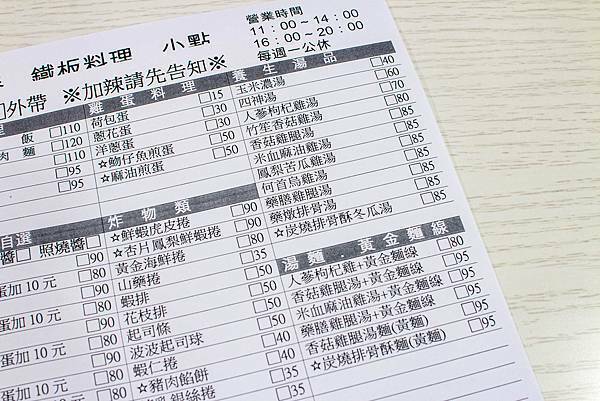 鐵板料理 小點
營業時間
11：00～14：00
16：00～20：00
每週一公休
外帶 ※加辣請先告知※
飯 □110
肉 麵 □120
□110
□95
□95
雞 蛋 料 理
荷包蛋 □15
蔥花蛋 □30
洋蔥蛋 □30
☆魩仔魚煎蛋 □50
☆麻油煎蛋 □50
養 生 湯 品
玉米濃湯 □40
四神湯 □60
人參枸杞雞湯 □70
竹笙香菇雞湯 □80
香菇雞腿湯 □85
米血麻油雞湯 □80
鳳梨苦瓜雞湯 □85
何首烏雞湯 □85
藥膳雞腿湯 □85
藥燉排骨湯 □85
☆炭燒排骨酥冬瓜湯 □85
自選
醬□ 照燒醬□
□90
蛋加 10 元 □80
□90
蛋加 10 元 □80
□90
蛋加 10 元 □80
□90
蛋加 10 元 □80
炸 物 類
☆鮮蝦虎皮捲 □90
☆杏片鳳梨鮮蝦捲 □90
黃金海鮮捲 □35
山藥捲 □50
蝦排 □50
花枝排 □50
起司條 □50
波波起司球 □40
蝦仁捲 □40
☆豬肉餡餅 □35
銀絲捲 □35
湯 麵 . 黃 金 麵 線
人參枸杞雞+黃金麵線 □80
香菇雞腿湯+黃金麵線 □95
米血麻油雞湯+黃金麵線 □95
藥膳雞腿湯+黃金麵線 □95
香菇雞腿湯麵(黃麵) □95
☆炭燒排骨酥麵(黃麵) □95